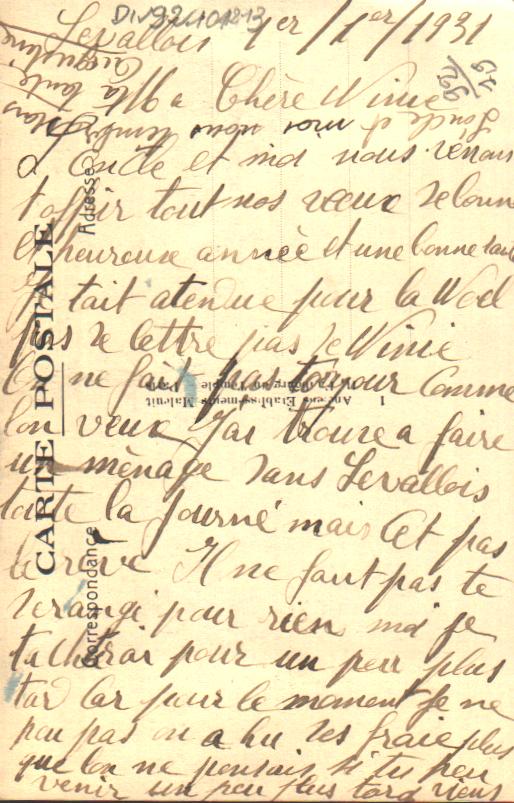 Levallois 1er/1er/1931
Ma Chère Ninie
Oncle et moi nous venons
t'offrir tout nos veux de bonne
et heureuse année et une bonne santé
tait atendue pour la Noel
pas de lettre pas de Ninie
ne fait pas toujour comme
lon veux Jai trouve a faire
un mènage dans Levallois
toute la journé mais cet pas
le reve Il ne faut pas te
derangé pour rien moi je
tacherai pour un peu plus
tar car pour le moment je ne
peu pas on a hu des fraie plus
que lon ne pensais si tu peu
venir un peu plus tard viens
CARTE POSTALE
Correspondance
Adresse
Anciens Etablissements Malcuit
Faubourg du Temple Paris
1